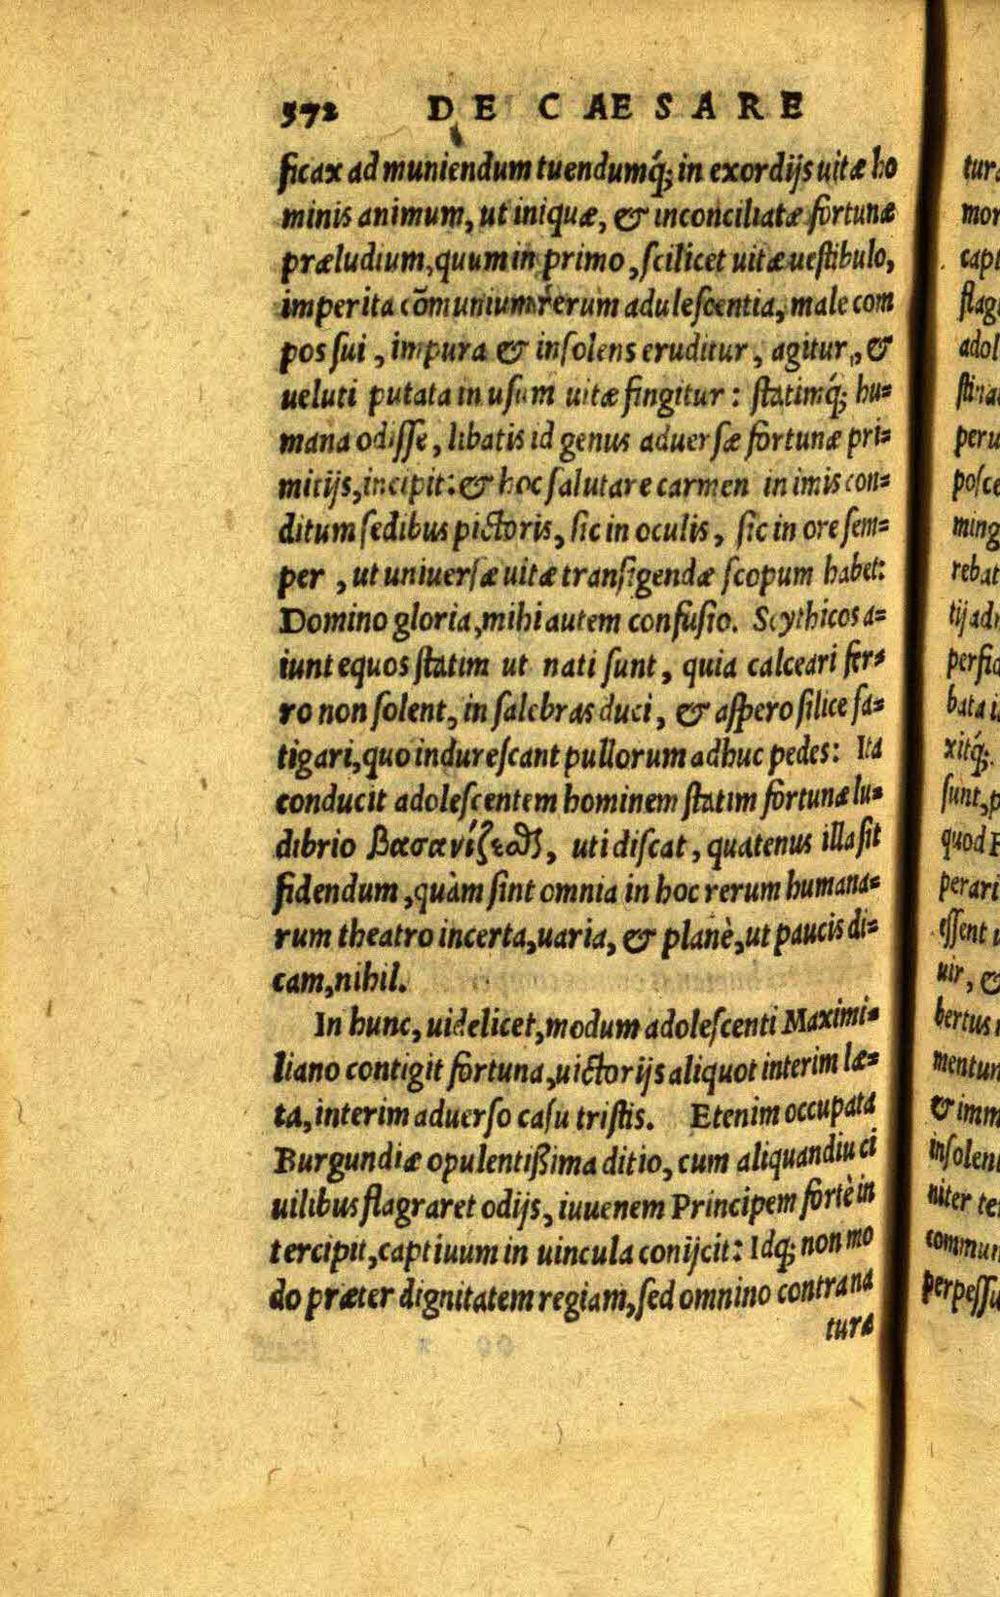 572 DE CAESARE
ficax ad muniendum tuendumq́; in exordijs uitæ ho
minis animum, ut iniquæ, & inconciliatæ fortunæ
præludium, quum in primo, scilicet uitæ uestibulo,
imperita cõmunium rerum adulescentia, male com
pos sui, impura & insolens eruditur, agitur, &
ueluti putata in usum uitæ fingitur: statimq́; hu=
mana odisse, libatis id genus aduersæ fortunæ pri=
mitijs, incipit: & hoc salutare carmen in imis con=
ditum sedibus pictoris, sic in oculis, sic in ore sem=
per, ut uniuersæ uitæ transigendæ scopum habet:
Domino gloria, mihi autem confusio. Scythicos a=
iunt equos statim ut nati sunt, quia calceari fer=
ro non solent, in salebras duci, & aspero silice fa=
tigari, quo indurescant pullorum adhuc pedes: Ita
conducit adolescentem hominem statim fortunæ lu=
dibrio βασανίζεσθαι, uti discat, quatenus illa sit
fidendum, quàm sint omnia in hoc rerum humana=
rum theatro incerta, uaria, & planè, ut paucis di=
cam, nihil.
In hunc, uidelicet, modum adolescenti Maximi=
liano contigit fortuna, uictorijs aliquot interim læ=
ta, interim aduerso casu tristis. Etenim occupata
Burgundiæ opulentißima ditio, cum aliquandiu ci
uilibus flagraret odijs, iuuenem Principem fortè in
tercipit, captiuum in uincula conijcit: Idq́; non mo
do præter dignitatem regiam, sed omnino contra na
turæ
tur
mor
capt
flag
adol
stina
peru
posce
ming
rebat
tij adu
perfid
bata i
xitq́;
sunt, p
quod
perari
essent
uir, &
bertus
mentum
& imm
insolen
niter te
commun
perpessu